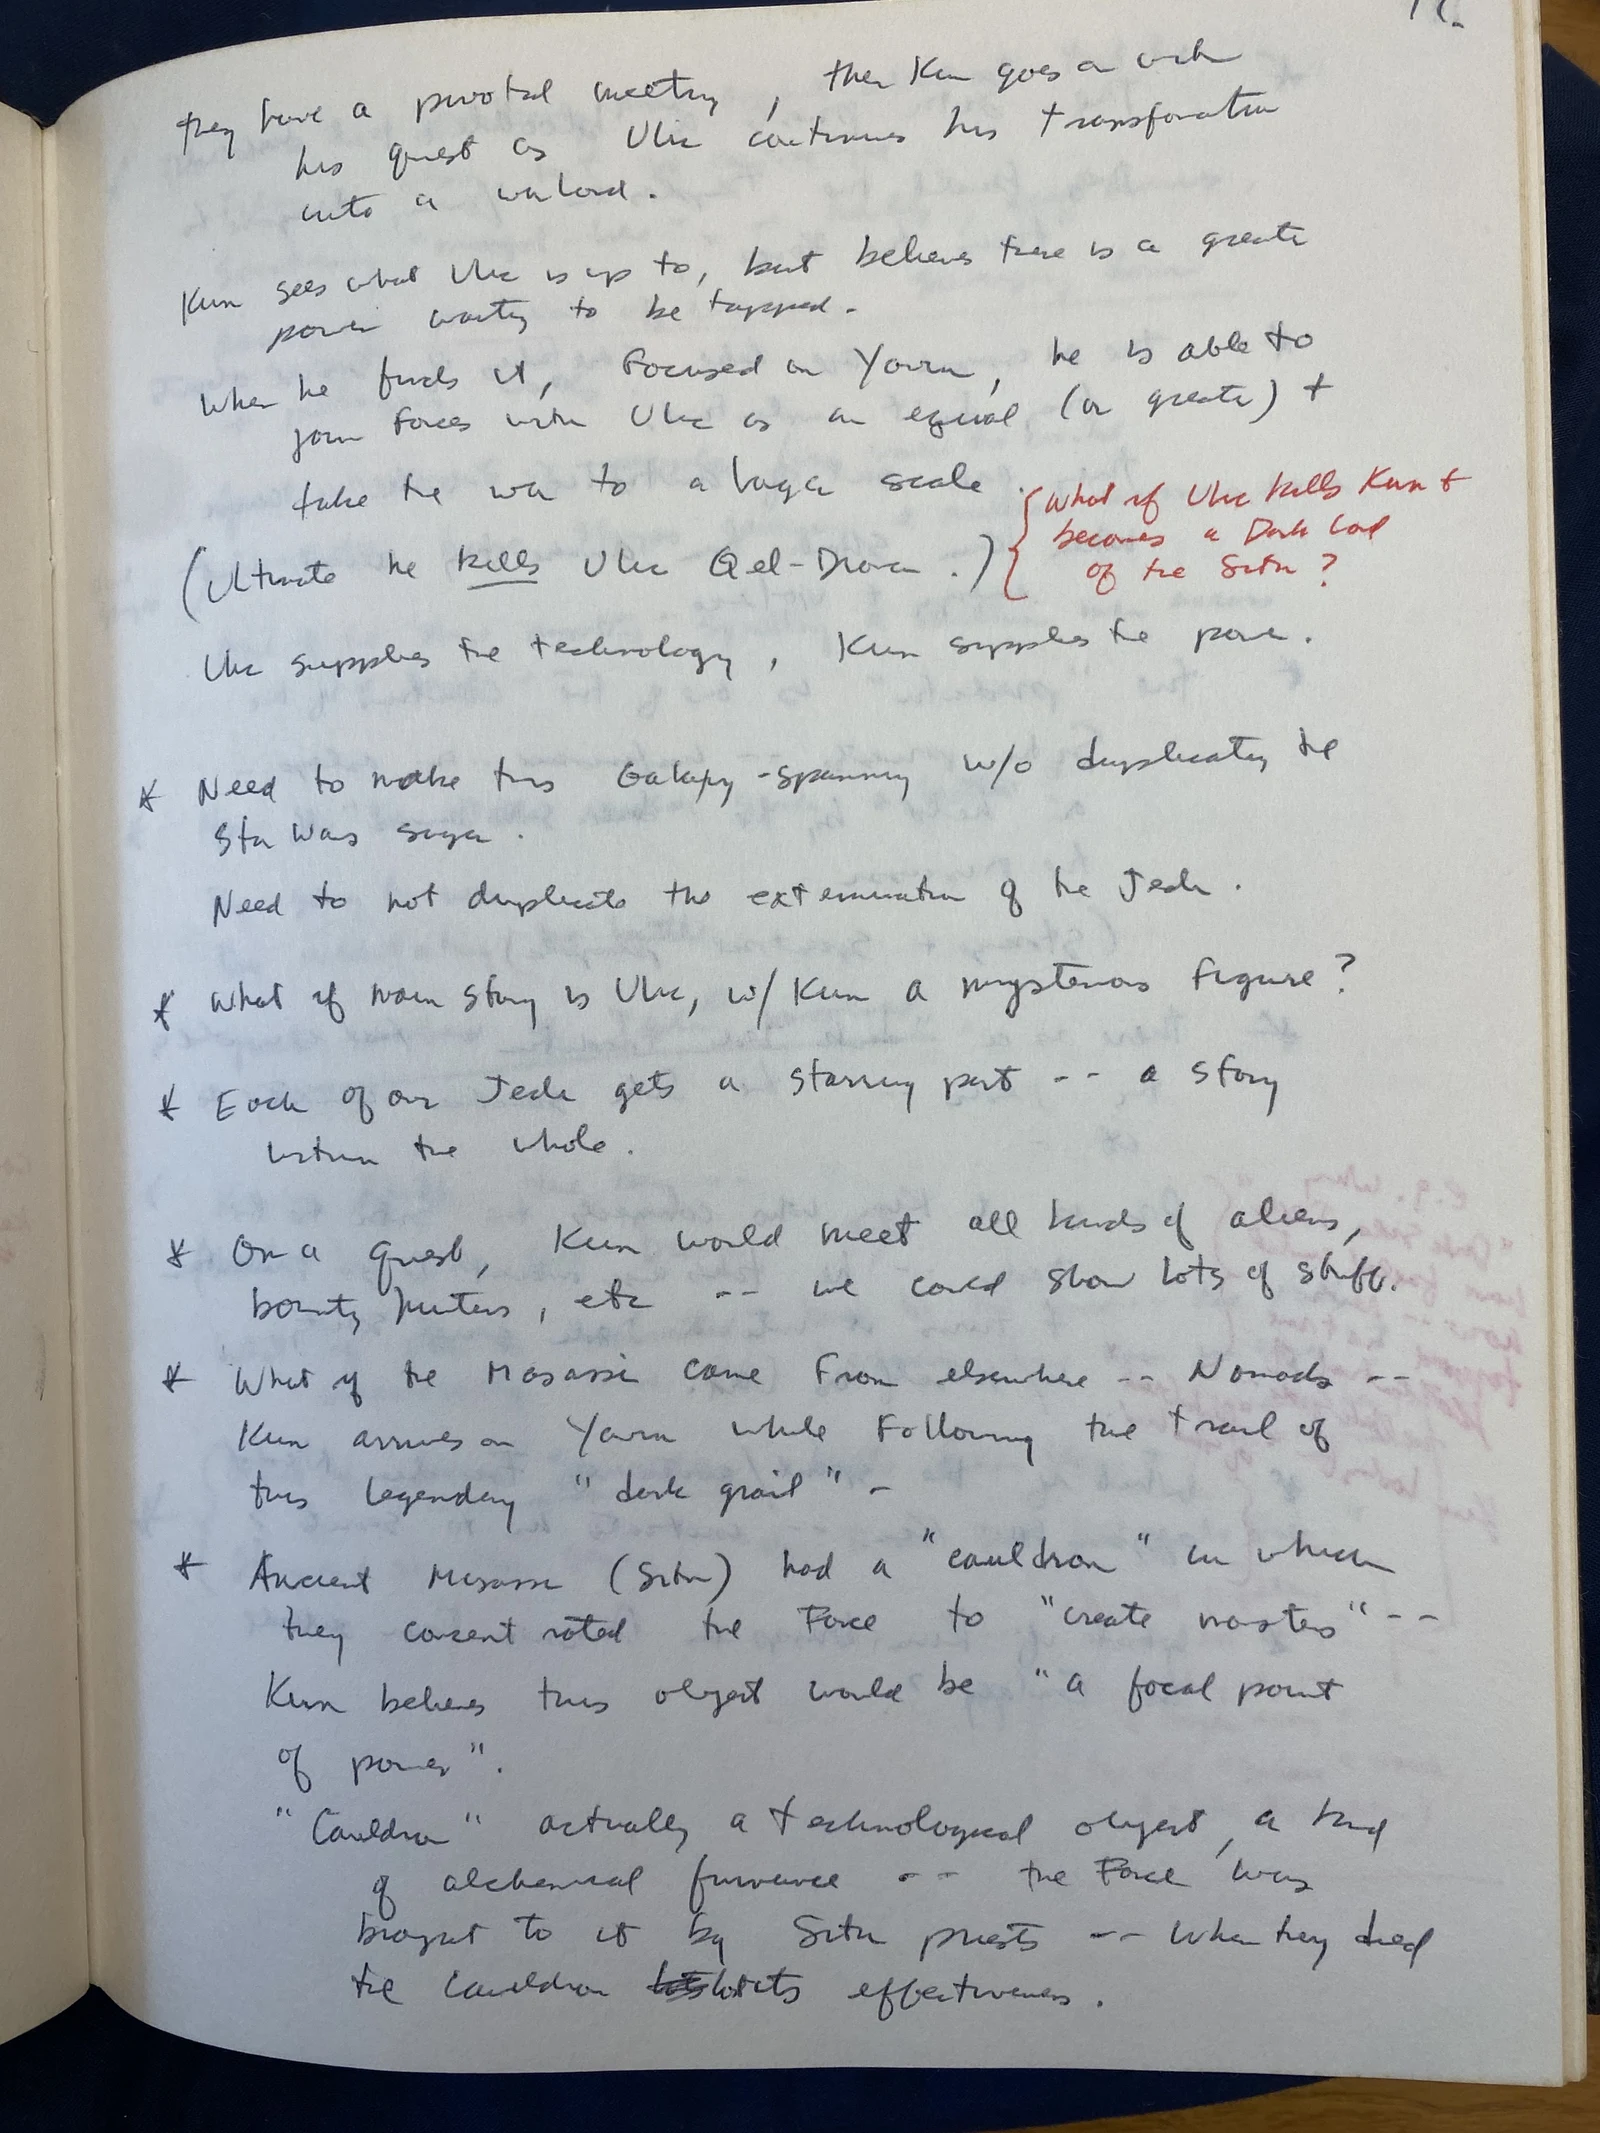 they have a pivotal meeting, then Kun goes on with
his quest as Ulic continues his transformation
into a warlord.
Kun sees what Ulic is up to, but believes there is a greater
power waiting to be tapped.
When he finds it, focused on Yavin, he is able to
join forces with Ulic as an equal (or greater) +
take the war to a larger scale.
(Ultimate he kills Ulic Qel-Droma.)
{ What if Ulic kills Kun +
becomes a Dark Lord
of the Sith?
Ulic supplies the technology, Kun supplies the power.
* Need to make this Galaxy-spanning w/o duplicating the
Star Wars saga.
Need to not duplicate the extermination of the Jedi.
* What if main story is Ulic, w/ Kun a mysterious figure?
* Each of our Jedi gets a starring part -- a story
within the whole.
* On a quest, Kun would meet all kinds of aliens,
bounty hunters, etc -- we could show lots of stuff.
* What if the Massassi came from elsewhere -- Nomads --
Kun arrives on Yavin while following the trail of
this legendary "dark grail" -
* Ancient Massassi (Sith) had a "cauldron" in which
they concentrated the Force to "create monsters" --
Kun believes this object would be "a focal point
of power".
"Cauldron" actually a technological object, a kind
of alchemical furnace -- the Force was
brought to it by Sith priests -- When they died
the cauldron lost its effectiveness.